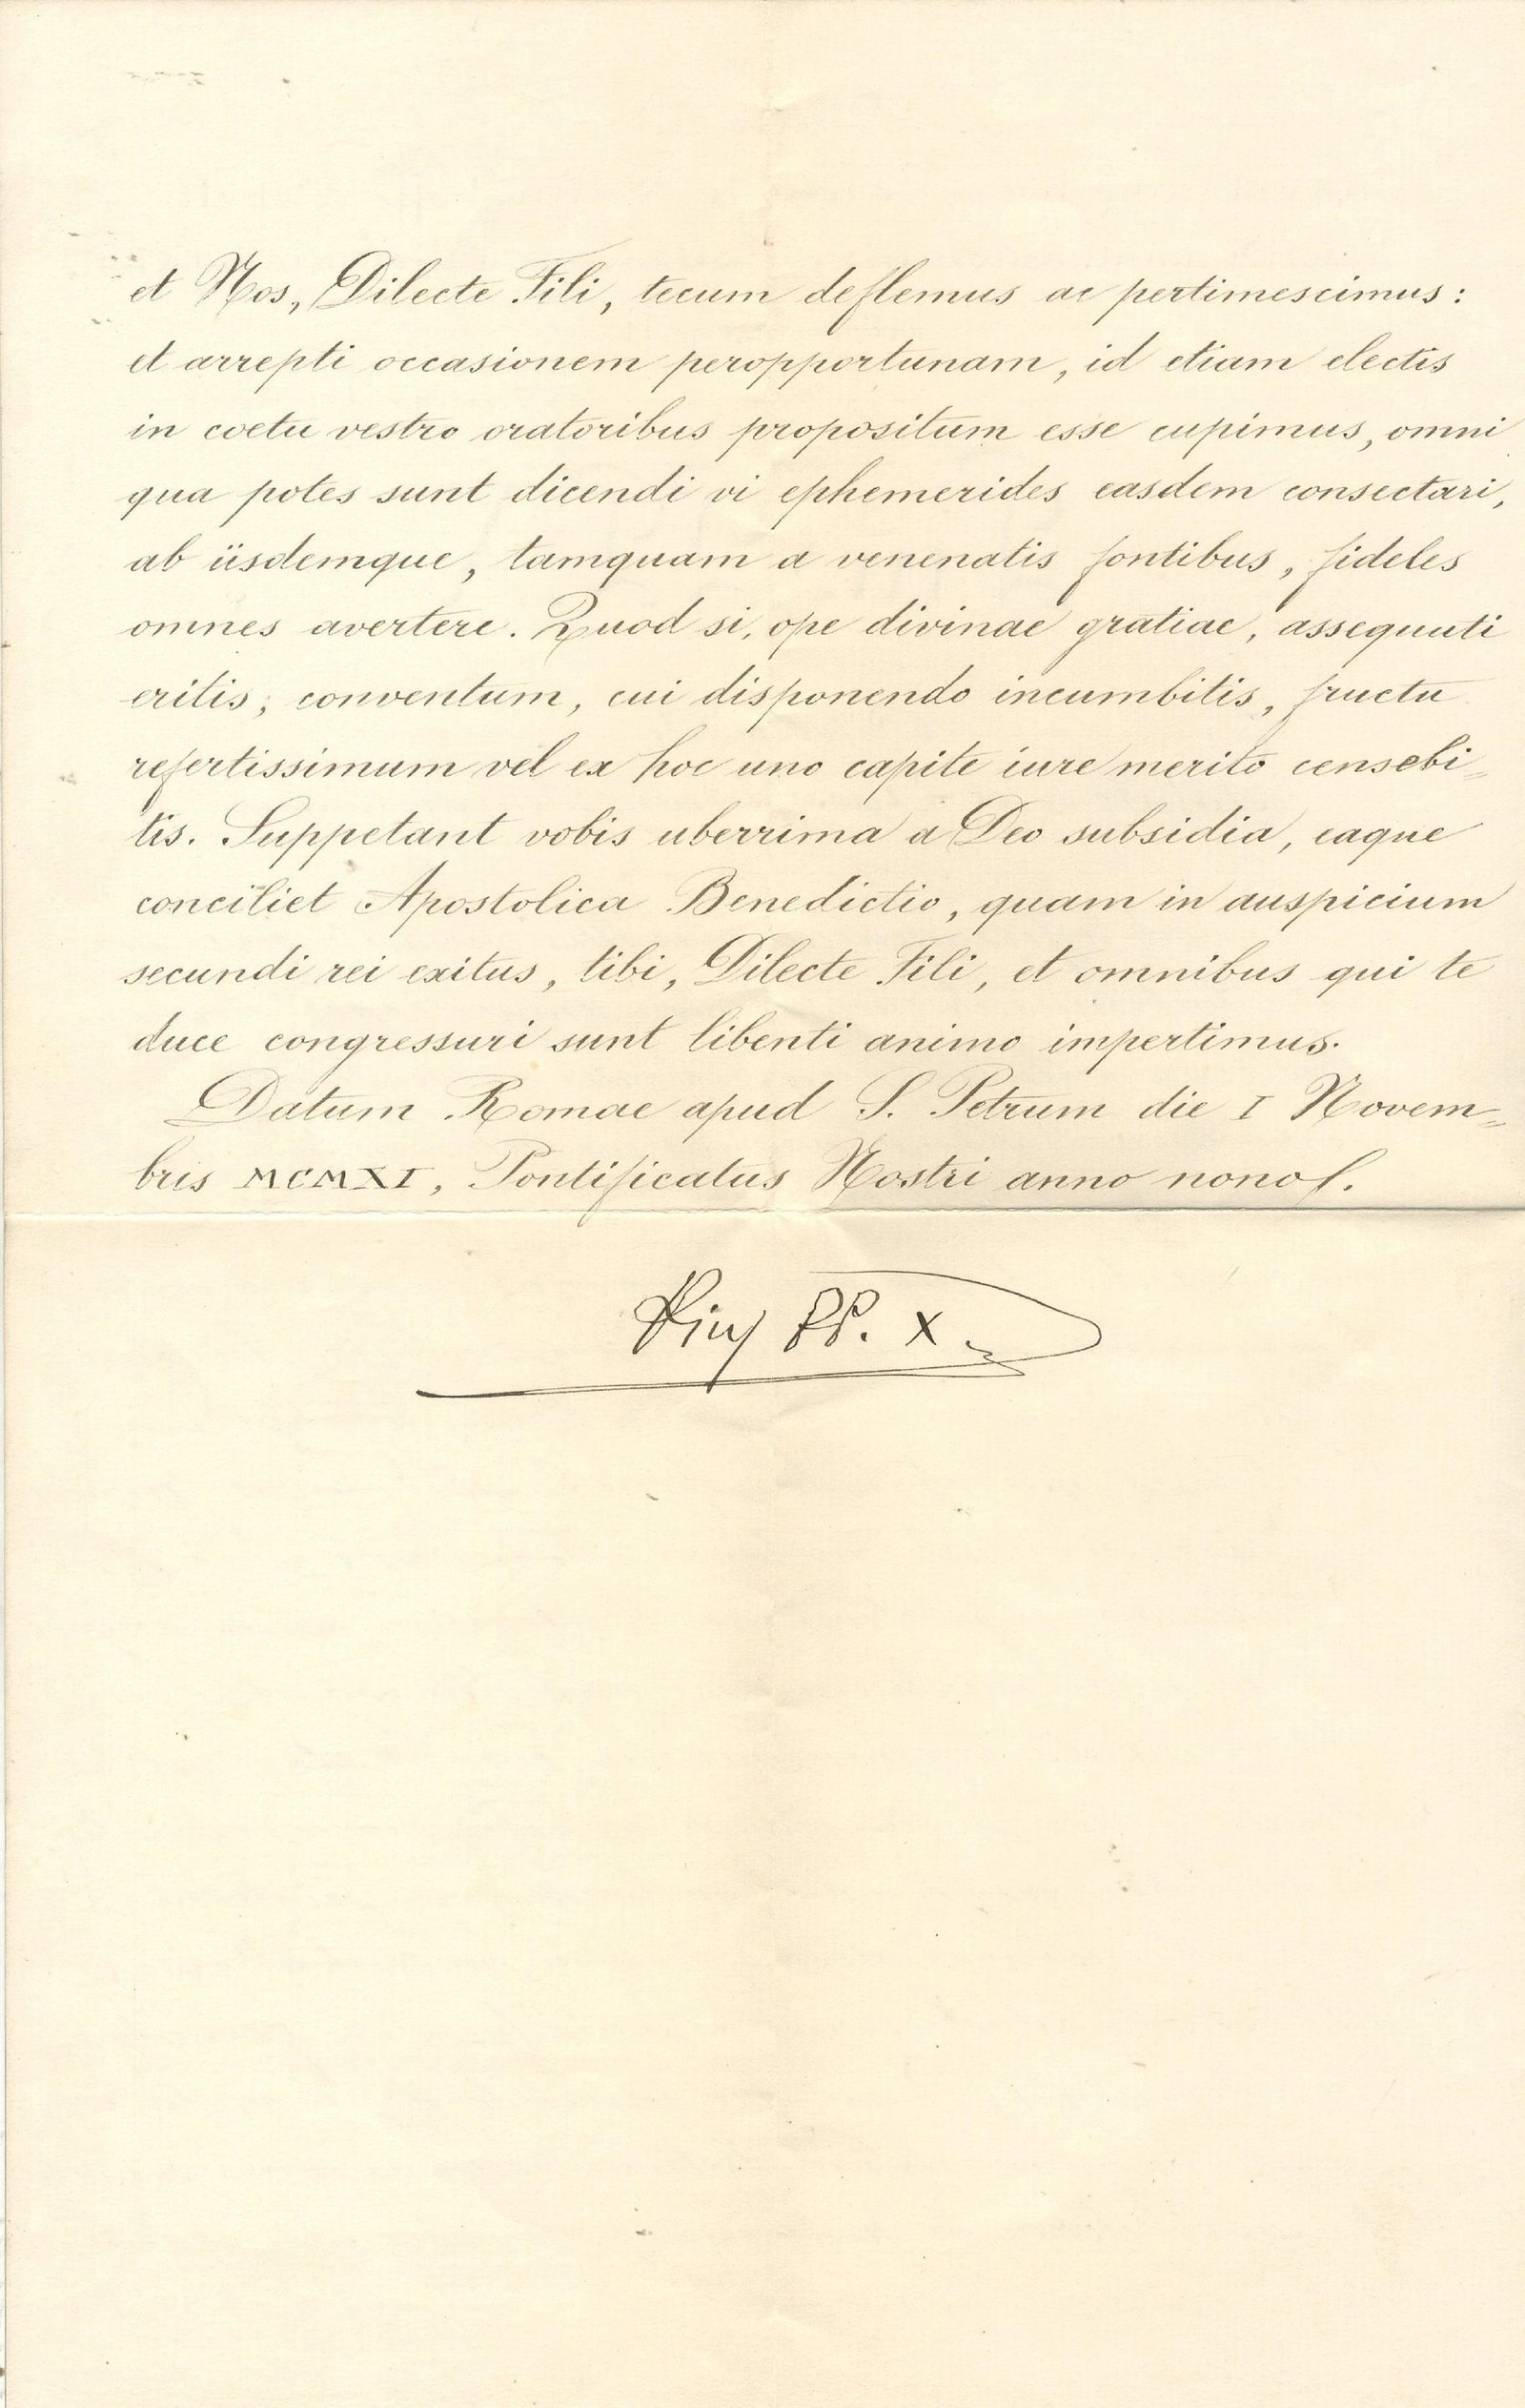 et Nos, Dilecte Fili, tecum deflemus ac pertimescimus:
et arrepti occasionem peropportunam, id etiam electis
in coetu vestro oratoribus propositum esse cupimus, omni
qua potes sunt dicendi vi ephemerides easdem consectari,
ab iisdemque, tamquam a venenatis fontibus, fideles
omnes avertere. Quod si, ope divinae gratiae, assequuti
eritis; conventum, cui disponendo incumbitis, fructu
refertissimum vel ex hoc uno capite iure merito censebi=
tis. Suppetant vobis uberrima a Deo subsidia, eaque
conciliet Apostolica Benedictio, quam in auspicium
secundi rei exitus, tibi, Dilecte Fili, et omnibus qui te
duce congressuri sunt libenti animo impertimus.
Datum Romae apud S. Petrum die I Novem=
bris MCMXI, Pontificatus Nostri anno nono.
Pius PP. X